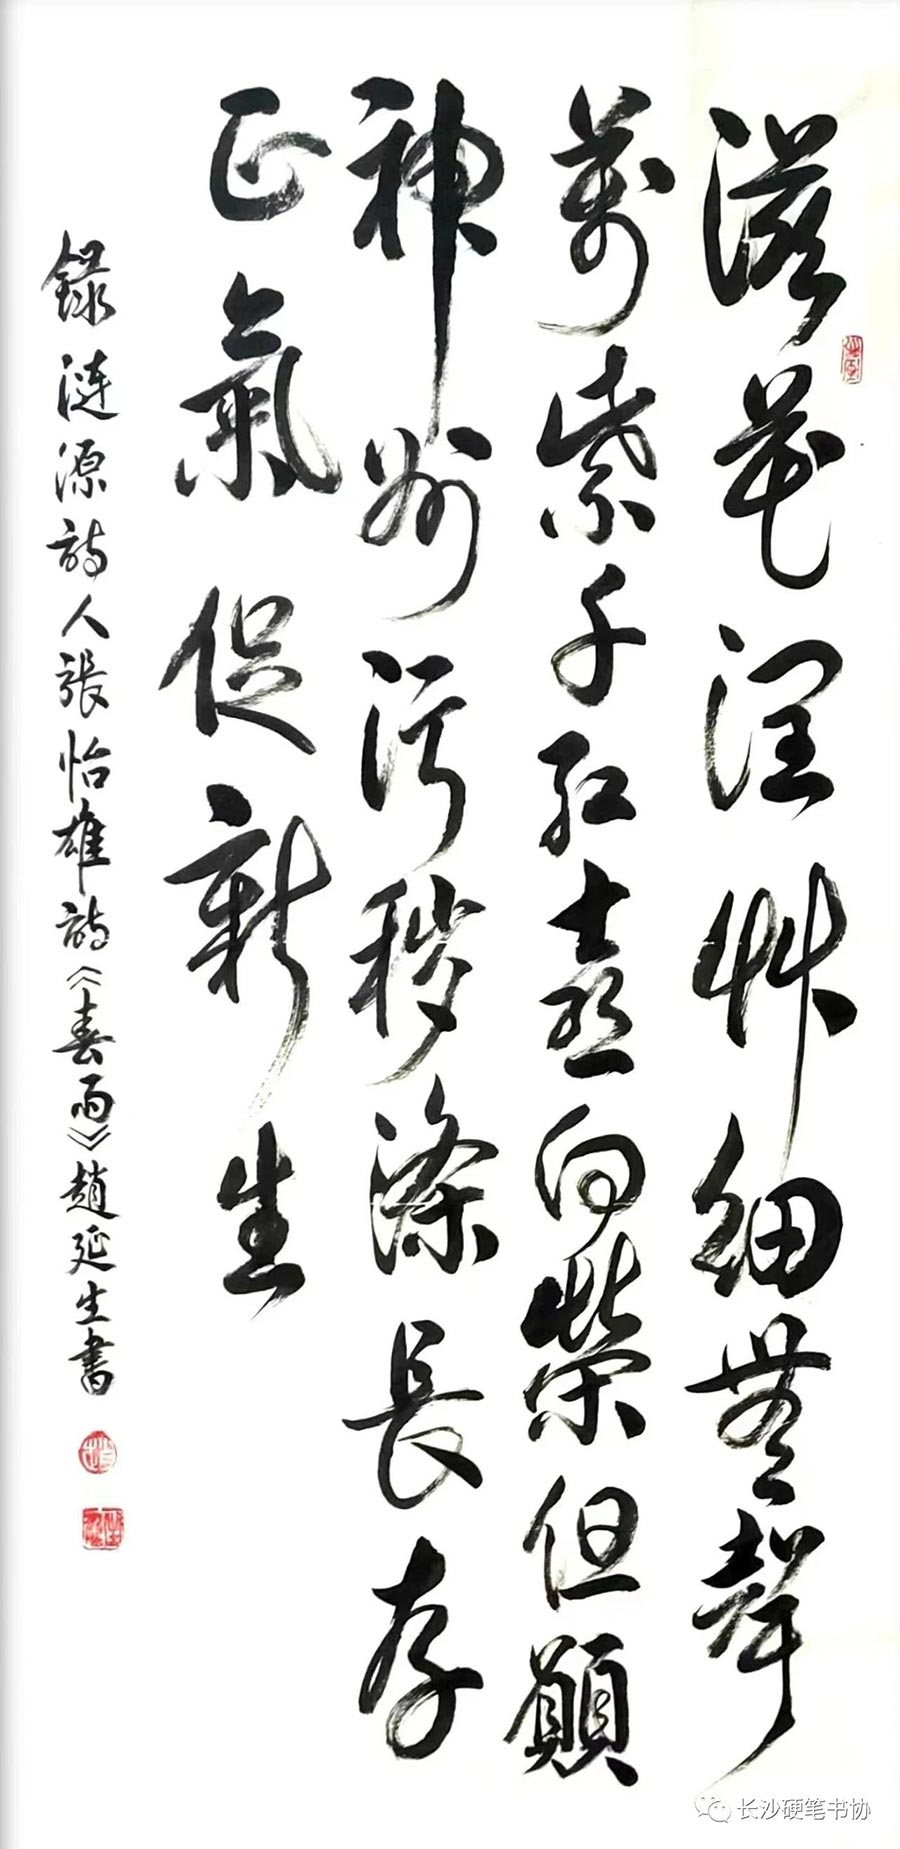 滋花潤艸細無聲
萬紫千紅喜向榮但願
神州污穢滌長存
正氣促新生
錄漣源詩人張怡雄詩《春雨》趙延生書
长沙硬笔书协